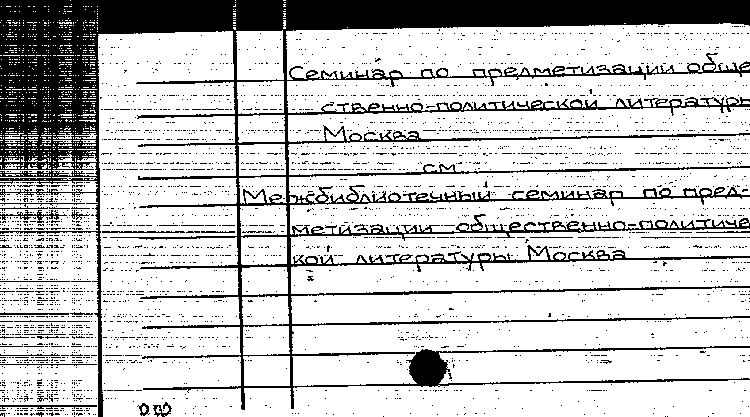 Семинар по предметизации обще
ственно-политической литературы
Москва
см.
Межбиблиотечный семинар по пред-
метизации общественно-политиче
кой литературы Москва